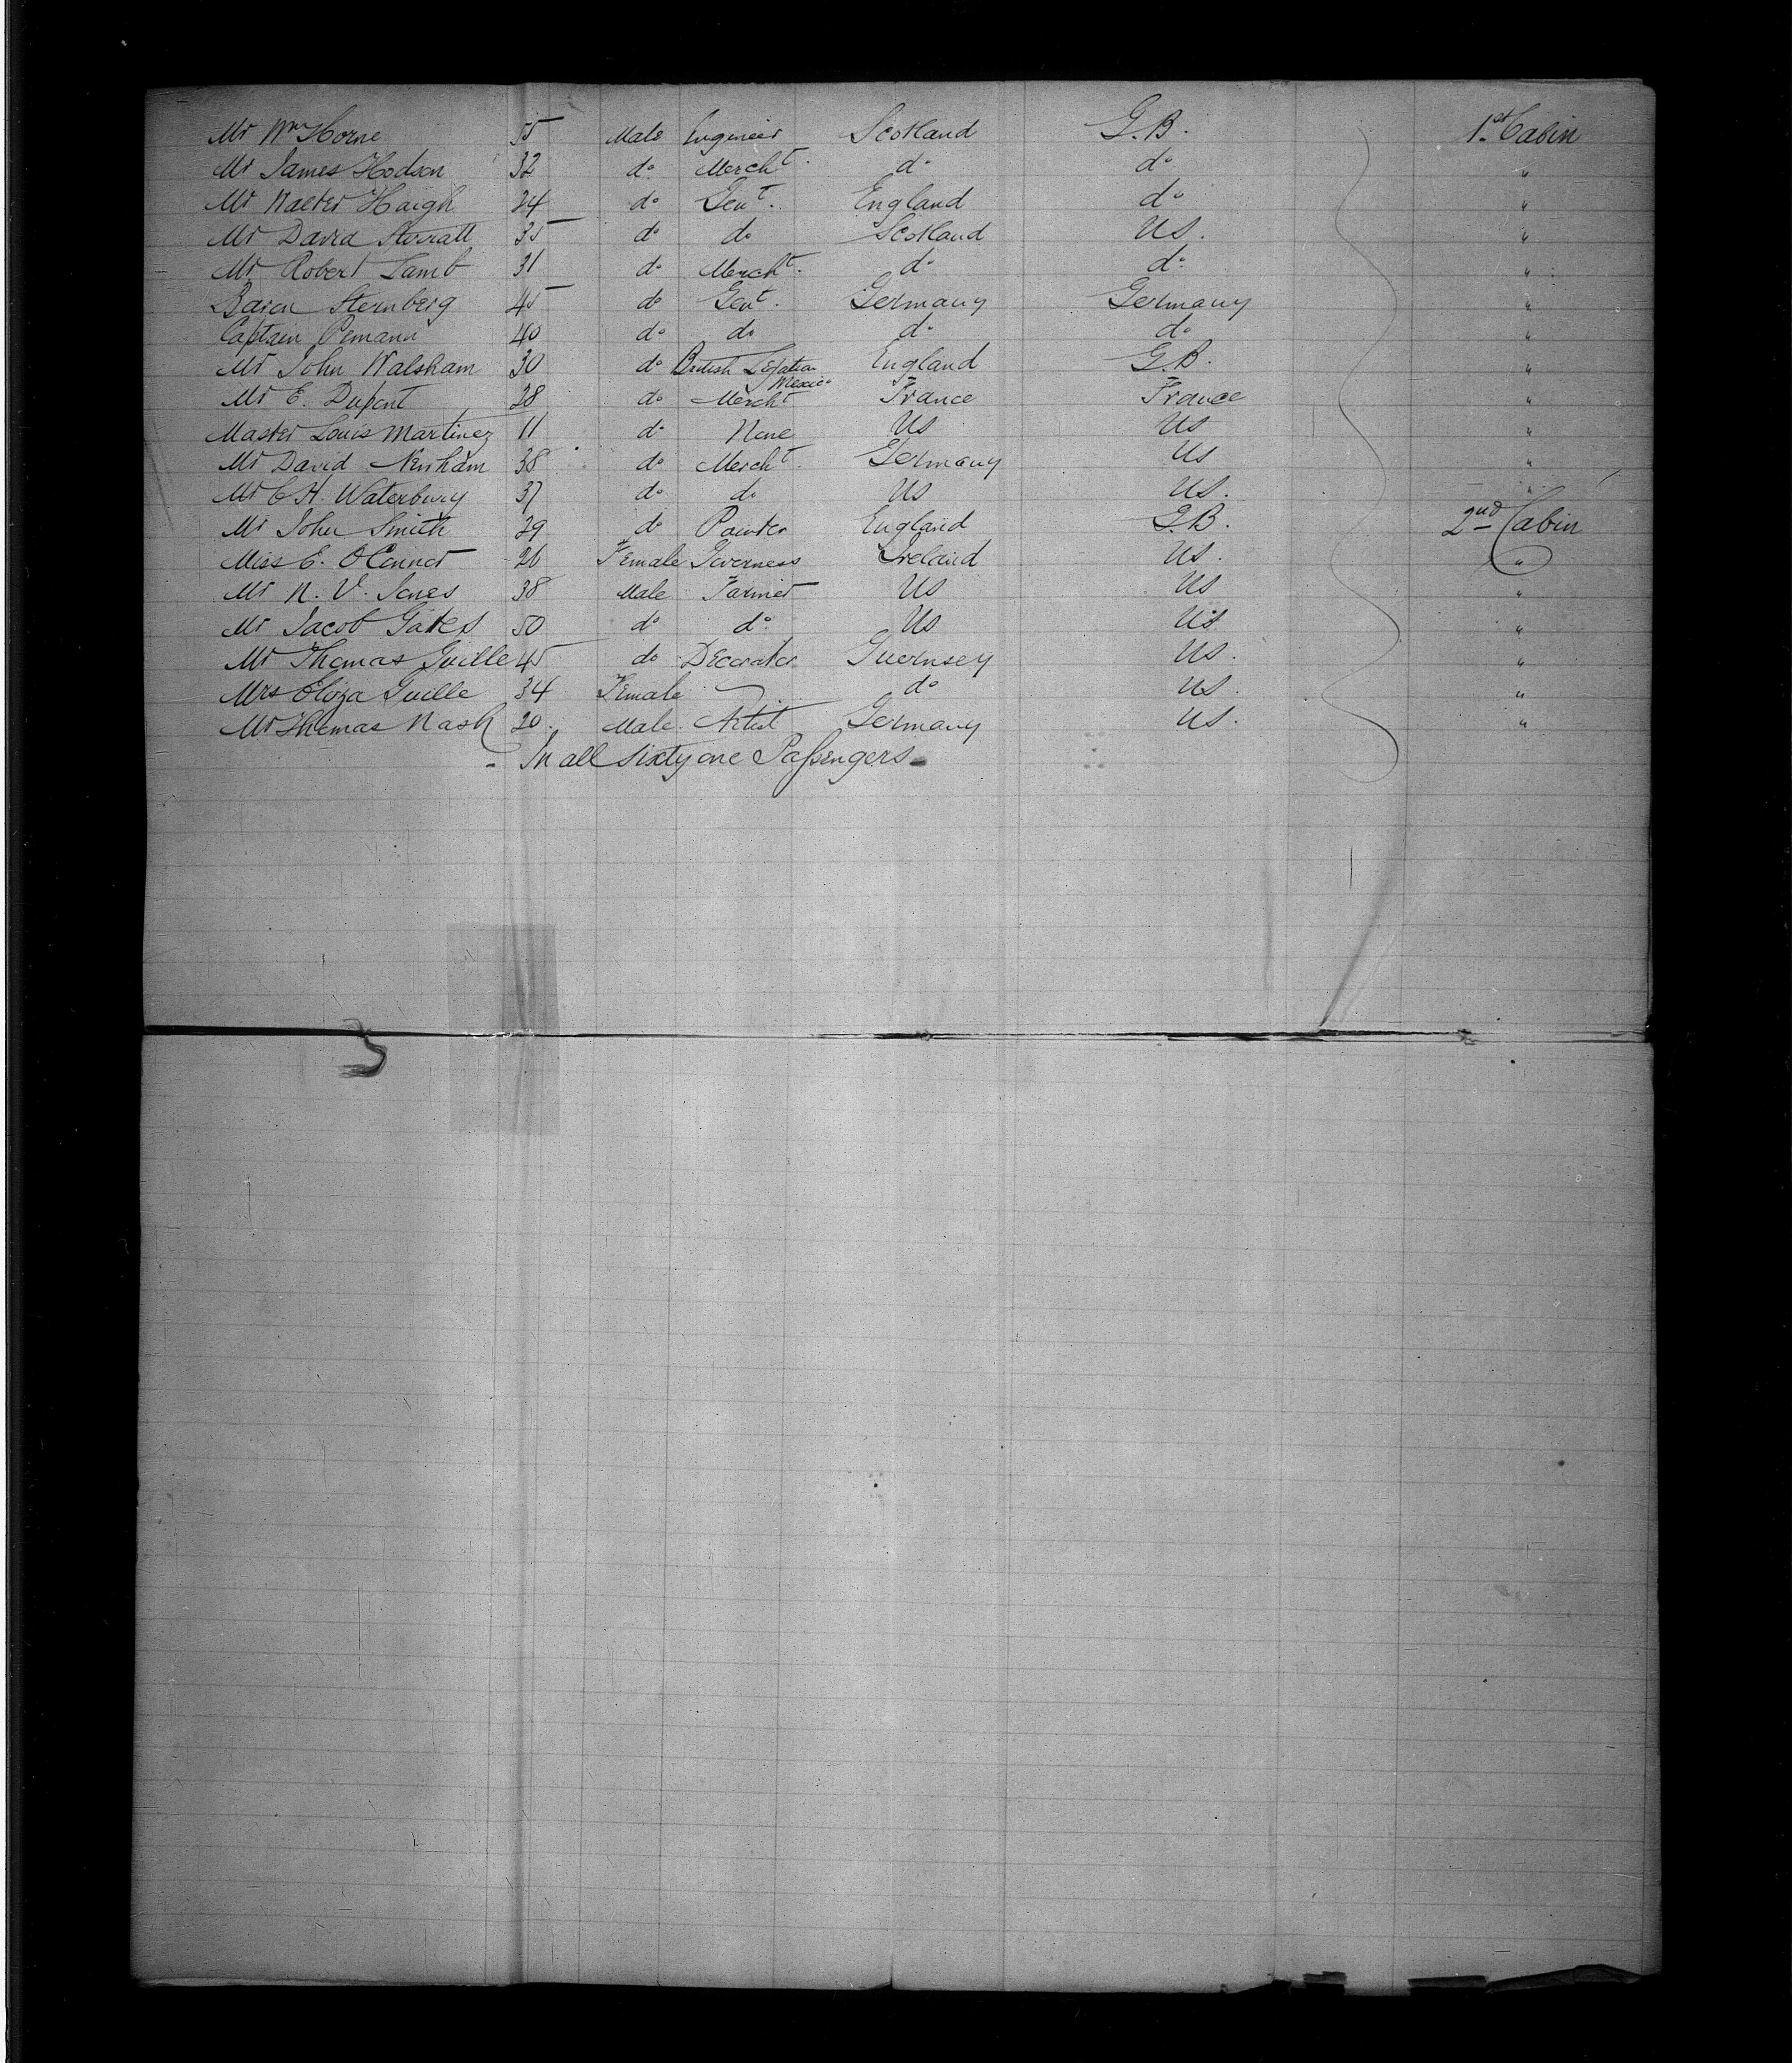 Mr Wm Horne 55 Male Engineer Scotland G.B. 1st Cabin
Mr James Hodson 32 do Mercht. do do "
Mr Walter Haigh 24 do Gent. England do "
Mr David Storratt 35 do do Scotland US. "
Mr Robert Lamb 31 do Mercht. do do "
Baron Sternberg 45 do Gent. Germany Germany "
Captain Pemann 40 do do do do "
Mr John Walsham 30 do British Legation Mexico England G.B. "
Mr E. Dupont 28 do Mercht France France "
Master Louis Martinez 11 do None US US "
Mr David 38 do Mercht. Germany US "
Mr C H. Waterbury 37 do do US US. "
Mr John Smith 29 do Painter England G.B. 2nd Cabin
Miss E. O'Connor 26 Female Governess Ireland US. "
Mr N. V. Jones 38 Male Farmer US US "
Mr Jacob Gates 50 do do US US "
Mr Thomas Guille 45 do Decorator Guernsey US. "
Mrs Eliza Guille 34 Female do US. "
Mr Thomas Nash 20. Male. Artist Germany US. "
- In all sixty one Passengers -